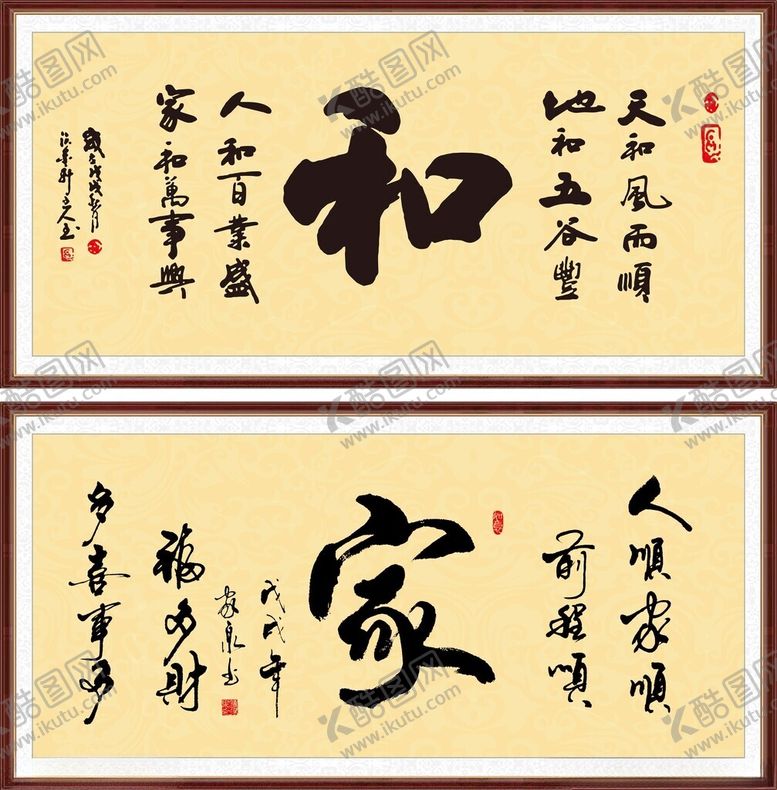 天和風雨順
地和五谷豐
和
人和百業盛
家和萬事興
人順家順
前程順
家
戊戌年
福多財
多喜事多
酷图网
www.ikutu.com